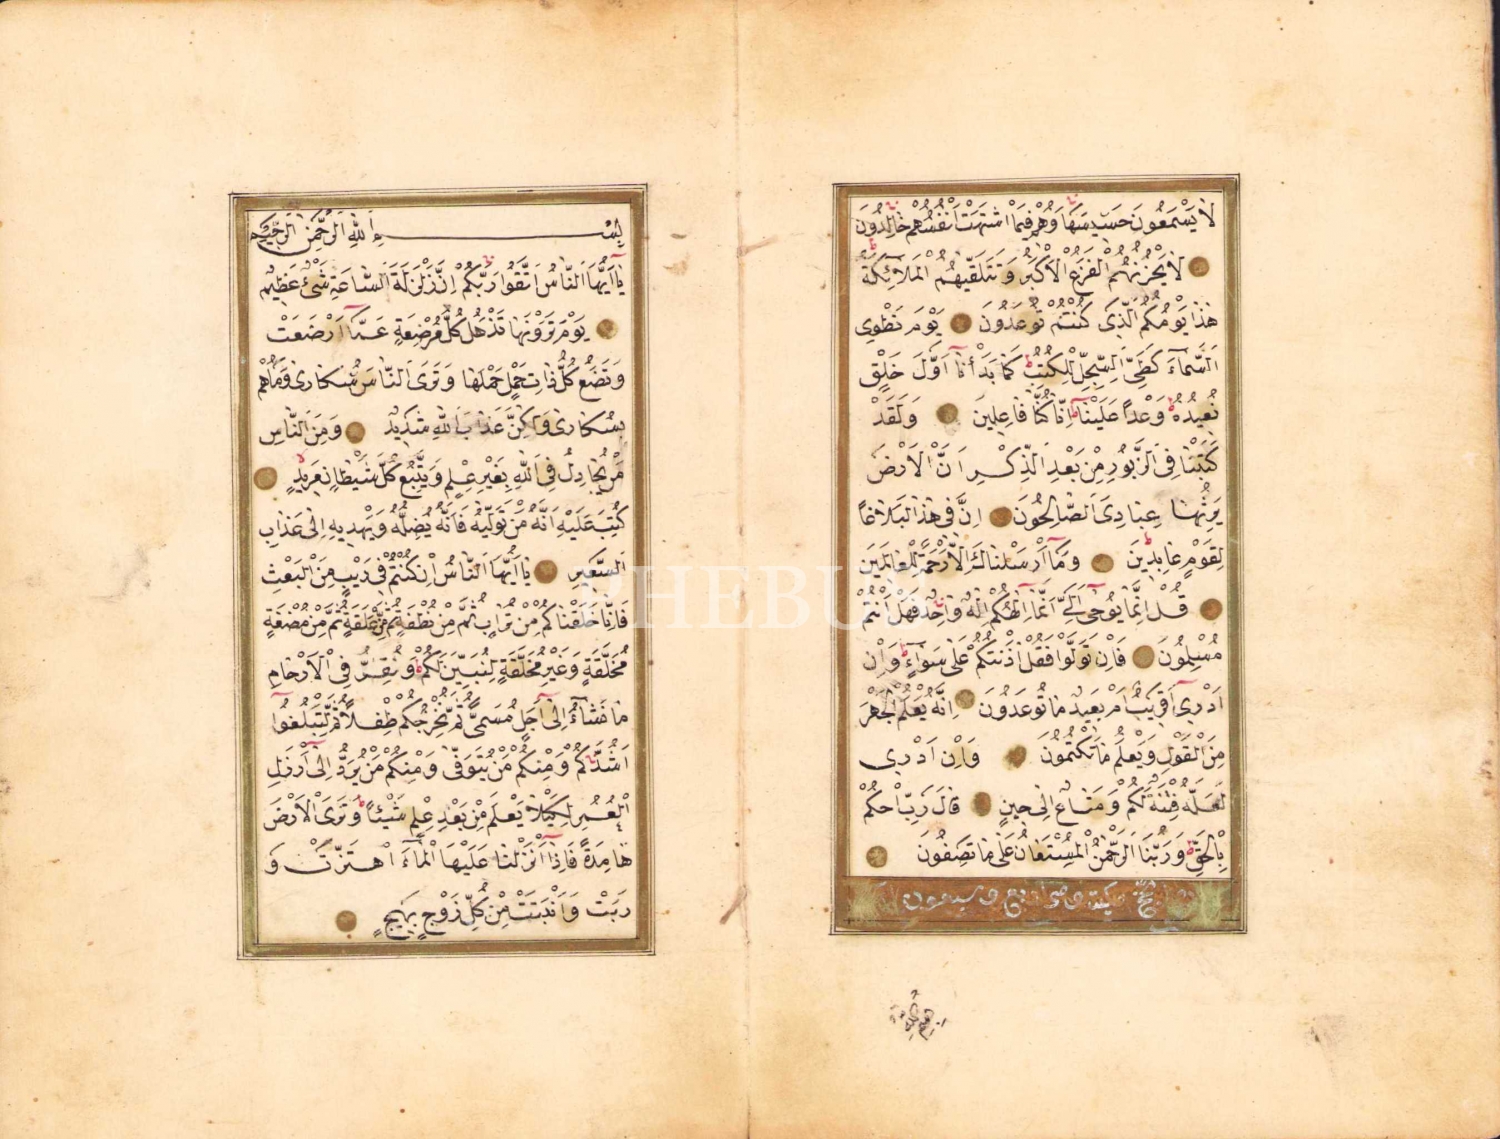 لَا يَسْمَعُونَ حَسِيسَهَا وَهُمْ فِيمَا اشْتَهَتْ اَنْفُسُهُمْ خَالِدُونَ
لَا يَحْزُنُهُمُ الْفَزَعُ الْاَكْبَرُ وَتَتَلَقّٰيهُمُ الْمَلٰٓائِكَةُ
هٰذَا يَوْمُكُمُ الَّذِي كُنْتُمْ تُوعَدُونَ يَوْمَ نَطْوِي
السَّمَآءَ كَطَيِّ السِّجِلِّ لِلْكُتُبِ كَمَا بَدَأْنَا اَوَّلَ خَلْقٍ
نُعِيدُهُ وَعْدًا عَلَيْنَا اِنَّا كُنَّا فَاعِلِينَ وَلَقَدْ
كَتَبْنَا فِي الزَّبُورِ مِنْ بَعْدِ الذِّكْرِ اَنَّ الْاَرْضَ
يَرِثُهَا عِبَادِيَ الصَّالِحُونَ اِنَّ فِي هٰذَا لَبَلَاغًا
لِقَوْمٍ عَابِدِينَ وَمَآ اَرْسَلْنَاكَ اِلَّا رَحْمَةً لِلْعَالَمِينَ
قُلْ اِنَّمَا يُوحٰٓى اِلَيَّ اَنَّمَآ اِلٰهُكُمْ اِلٰهٌ وَاحِدٌ فَهَلْ اَنْتُمْ
مُسْلِمُونَ فَاِنْ تَوَلَّوْا فَقُلْ اٰذَنْتُكُمْ عَلٰى سَوَآءٍ وَاِنْ
اَدْرِي اَقَرِيبٌ اَمْ بَعِيدٌ مَا تُوعَدُونَ اِنَّهُ يَعْلَمُ الْجَهْرَ
مِنَ الْقَوْلِ وَيَعْلَمُ مَا تَكْتُمُونَ وَاِنْ اَدْرِي
لَعَلَّهُ فِتْنَةٌ لَكُمْ وَمَتَاعٌ اِلٰى حِينٍ قَالَ رَبِّ احْكُمْ
بِالْحَقِّ وَرَبُّنَا الرَّحْمٰنُ الْمُسْتَعَانُ عَلٰى مَا تَصِفُونَ
بِسْمِ اللّٰهِ الرَّحْمٰنِ الرَّحِيمِ
يَآ اَيُّهَا النَّاسُ اتَّقُوا رَبَّكُمْ اِنَّ زَلْزَلَةَ السَّاعَةِ شَيْءٌ عَظِيمٌ
يَوْمَ تَرَوْنَهَا تَذْهَلُ كُلُّ مُرْضِعَةٍ عَمَّآ اَرْضَعَتْ
وَتَضَعُ كُلُّ ذَاتِ حَمْلٍ حَمْلَهَا وَتَرَى النَّاسَ سُكَارٰى وَمَا هُمْ
بِسُكَارٰى وَلٰكِنَّ عَذَابَ اللّٰهِ شَدِيدٌ وَمِنَ النَّاسِ
مَنْ يُجَادِلُ فِي اللّٰهِ بِغَيْرِ عِلْمٍ وَيَتَّبِعُ كُلَّ شَيْطَانٍ مَرِيدٍ
كُتِبَ عَلَيْهِ اَنَّهُ مَنْ تَوَلَّاهُ فَاَنَّهُ يُضِلُّهُ وَيَهْدِيهِ اِلٰى عَذَابِ
السَّعِيرِ يَآ اَيُّهَا النَّاسُ اِنْ كُنْتُمْ فِي رَيْبٍ مِنَ الْبَعْثِ
فَاِنَّا خَلَقْنَاكُمْ مِنْ تُرَابٍ ثُمَّ مِنْ نُطْفَةٍ ثُمَّ مِنْ عَلَقَةٍ ثُمَّ مِنْ مُضْغَةٍ
مُخَلَّقَةٍ وَغَيْرِ مُخَلَّقَةٍ لِنُبَيِّنَ لَكُمْ وَنُقِرُّ فِي الْاَرْحَامِ
مَا نَشَآءُ اِلٰٓى اَجَلٍ مُسَمًّى ثُمَّ نُخْرِجُكُمْ طِفْلًا ثُمَّ لِتَبْلُغُوٓا
اَشُدَّكُمْ وَمِنْكُمْ مَنْ يُتَوَفّٰى وَمِنْكُمْ مَنْ يُرَدُّ اِلٰٓى اَرْذَلِ
الْعُمُرِ لِكَيْلَا يَعْلَمَ مِنْ بَعْدِ عِلْمٍ شَيْئًا وَتَرَى الْاَرْضَ
هَامِدَةً فَاِذَآ اَنْزَلْنَا عَلَيْهَا الْمَآءَ اهْتَزَّتْ وَ
رَبَتْ وَاَنْبَتَتْ مِنْ كُلِّ زَوْجٍ بَهِيجٍ
PHEBUS